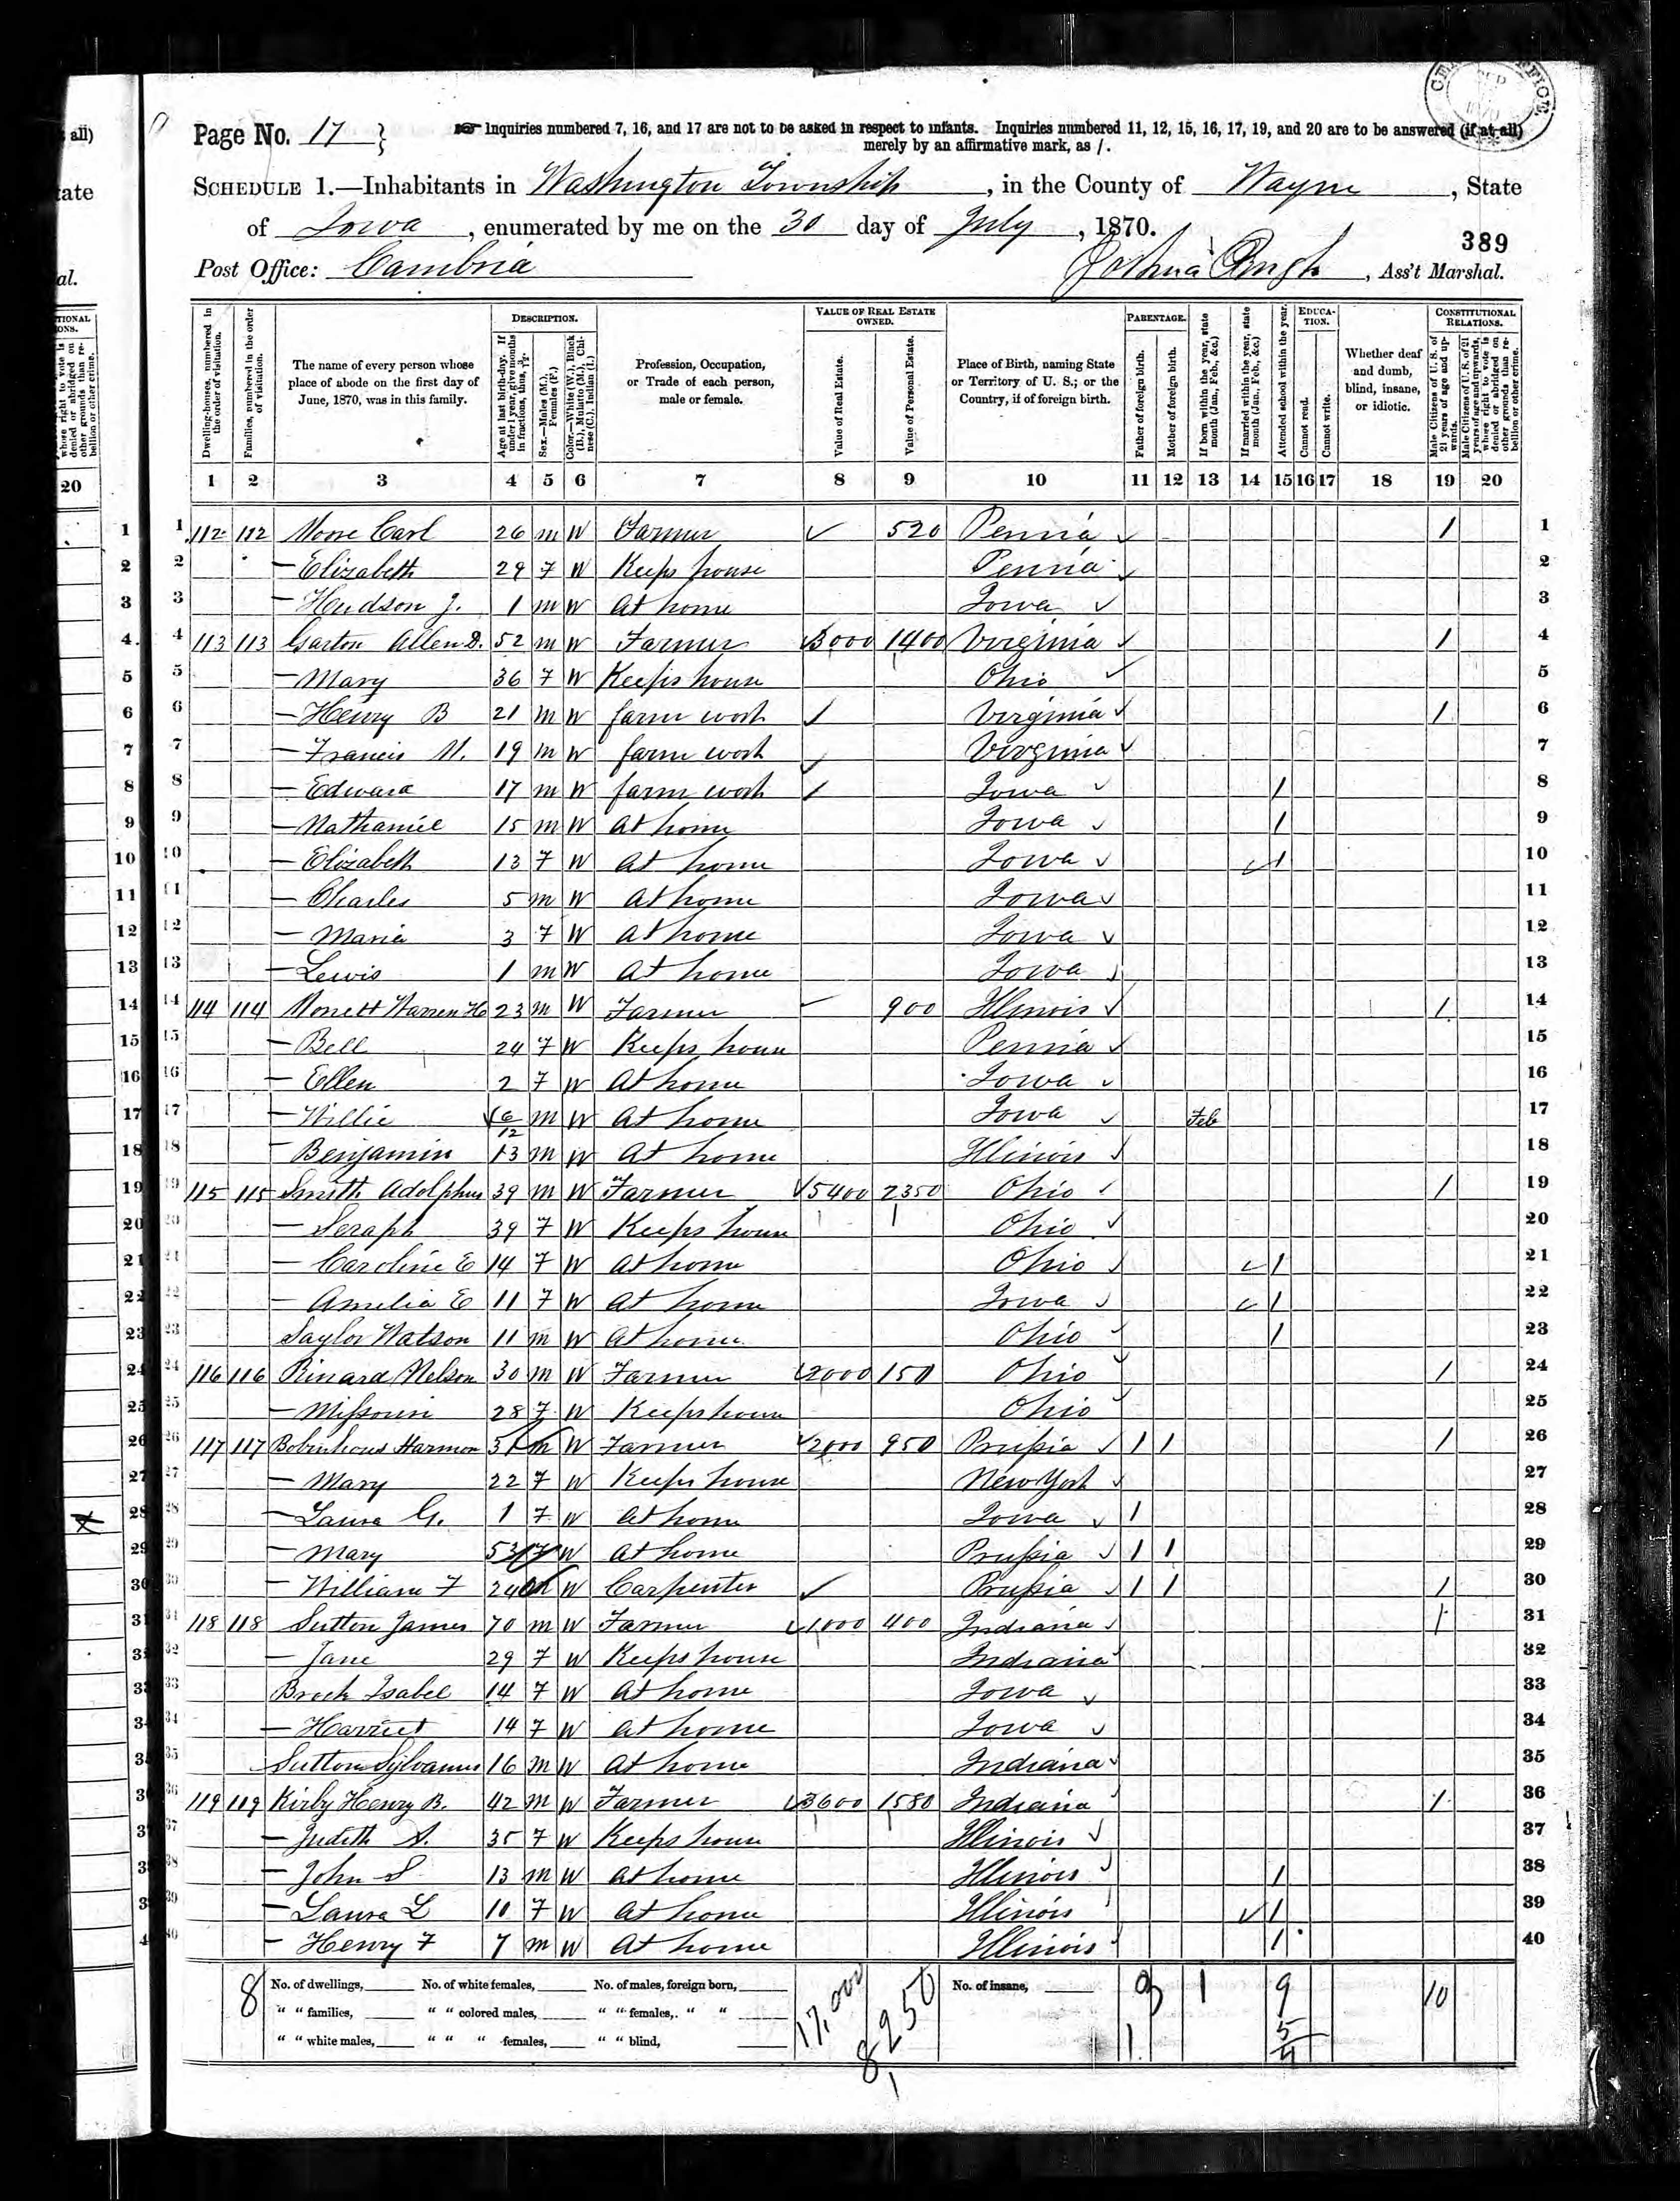 Page No. 17 }
Inquiries numbered 7, 16, and 17 are not to be asked in respect to infants. Inquiries numbered 11, 12, 15, 16, 17, 19, and 20 are to be answered (if at all)
merely by an affirmative mark, as /.
SCHEDULE 1.—Inhabitants in Washington Township, in the County of Wayne, State
of Iowa, enumerated by me on the 30 day of July, 1870.
389
Post Office: Cambria Joshua , Ass't Marshal.
Dwelling-houses, numbered in the order of visitation.
Families, numbered in the order of visitation.
The name of every person whose place of abode on the first day of June, 1870, was in this family.
DESCRIPTION.
Age at last birth-day. If under 1 year, give months in fractions, thus,
Sex.—Males (M.), Females (F.)
Color.—White (W.), Black (B.), Mulatto (M.), Chinese (C.), Indian (I.)
Profession, Occupation, or Trade of each person, male or female.
VALUE OF REAL ESTATE OWNED.
Value of Real Estate.
Value of Personal Estate.
Place of Birth, naming State or Territory of U. S.; or the Country, if of foreign birth.
PARENTAGE.
Father of foreign birth.
Mother of foreign birth.
If born within the year, state month (Jan., Feb., &c.)
If married within the year, state month (Jan., Feb., &c.)
Attended school within the year.
EDUCATION.
Cannot read.
Cannot write.
Whether deaf and dumb, blind, insane, or idiotic.
CONSTITUTIONAL RELATIONS.
Male Citizens of U. S. of 21 years of age and upwards.
Male Citizens of U. S. of 21 years of age and upwards, whose right to vote is denied or abridged on other grounds than rebellion or other crime.
1 2 3 4 5 6 7 8 9 10 11 12 13 14 15 16 17 18 19 20
1 112 112 Moore Carl 26 m W Farmer 520 Penna / 1
2 — Elizabeth 29 F W Keeps house Penna 2
3 — Hudson J. 1 m W at home Iowa 3
4 113 113 Garton Allen D. 52 m W Farmer 3000 1400 Virginia / 4
5 — Mary 36 F W Keeps house Ohio 5
6 — Henry B 21 m W farm work Virginia / 6
7 — Francis M. 19 m W farm work Virginia 7
8 — Edward 17 m W farm work Iowa / 8
9 — Nathaniel 15 m W at home Iowa / 9
10 — Elizabeth 13 F W at home Iowa / 10
11 — Charles 5 m W at home Iowa 11
12 — Maria 3 F W at home Iowa 12
13 — Lewis 1 m W at home Iowa 13
14 114 114 Warren H 23 m W Farmer 900 Illinois / 14
15 — Bell 24 F W Keeps house Penna 15
16 — Ellen 2 F W at home Iowa 16
17 — Willie 6/12 m W at home Iowa Feb 17
18 — Benjamin 13 m W at home Illinois 18
19 115 115 Smith Adolphus 39 m W Farmer 5400 2350 Ohio / 19
20 — Seraph 39 F W Keeps house Ohio 20
21 — Caroline E 14 F W at home Ohio / 21
22 — Amelia E 11 F W at home Iowa / 22
23 Saylor Watson 11 m W at home Ohio / 23
24 116 116 Rinard Nelson 30 m W Farmer 2000 150 Ohio / 24
25 — Missouri 28 F W Keeps house Ohio 25
26 117 117 Bobenhous Harmon 31 m W Farmer 2000 950 Prussia / / / 26
27 — Mary 22 F W Keeps house New York 27
28 — Laura G. 1 F W at home Iowa / 28
29 — Mary 53 F W at home Prussia / / 29
30 — William F 24 m W Carpenter Prussia / / / 30
31 118 118 Sutton James 70 m W Farmer 1000 400 Indiana / 31
32 — Jane 29 F W Keeps house Indiana 32
33 Brock Isabel 14 F W at home Iowa 33
34 — Harriet 14 F W at home Iowa 34
35 Sutton Sylvanus 16 m W at home Indiana 35
36 119 119 Kirby Henry B. 42 m W Farmer 3600 1580 Indiana / 36
37 — Judith A. 35 F W Keeps house Illinois 37
38 — John S 13 m W at home Illinois / 38
39 — Laura L 10 F W at home Illinois / 39
40 — Henry F 7 m W at home Illinois / 40
8 No. of dwellings, No. of white females, No. of males, foreign born, 17,000 8250 No. of insane, 1 9 10
" " families, " " colored males, " " females, " "
" " white males, " " " females, " " blind, 1 5